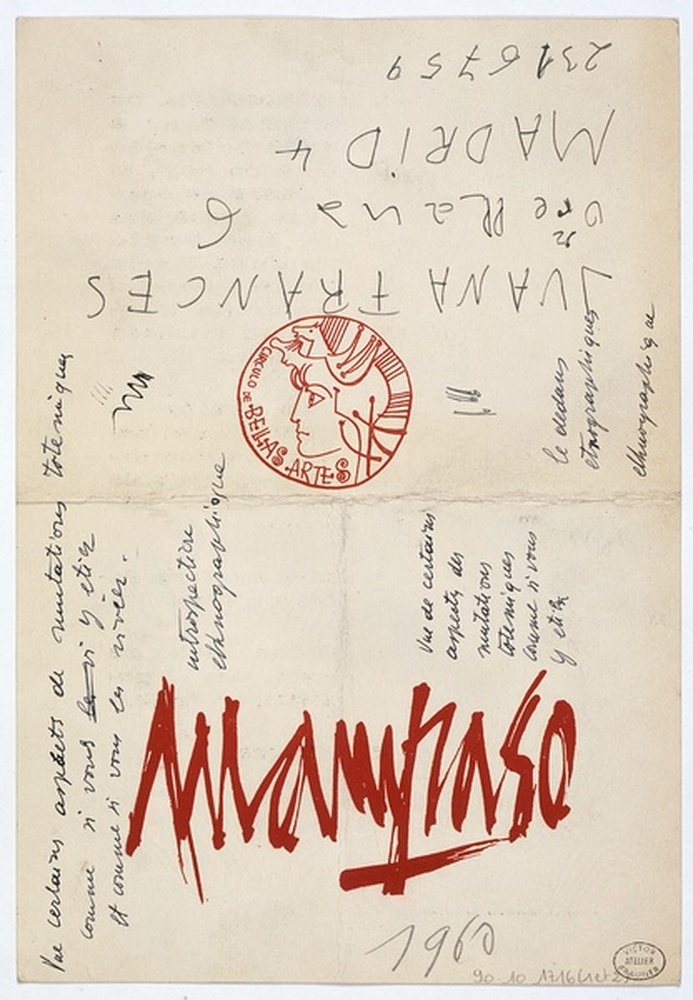 2316759
MADRID 4
Orellana 6
JUANA FRANCES
CIRCULO DE BELLAS ARTES
le dedans
etnographiques
ethnographique
Vue certains aspects de mutations totemiques
comme si vous y etiez
et comme si vous les viviez.
introspective
ethnographique
Vue de certains
aspects des
mutations
totemiques
comme si vous
y etiez
Mampaso
1960
90-10-1716 (1et2)
VICTOR
ATELIER
BRAUNER